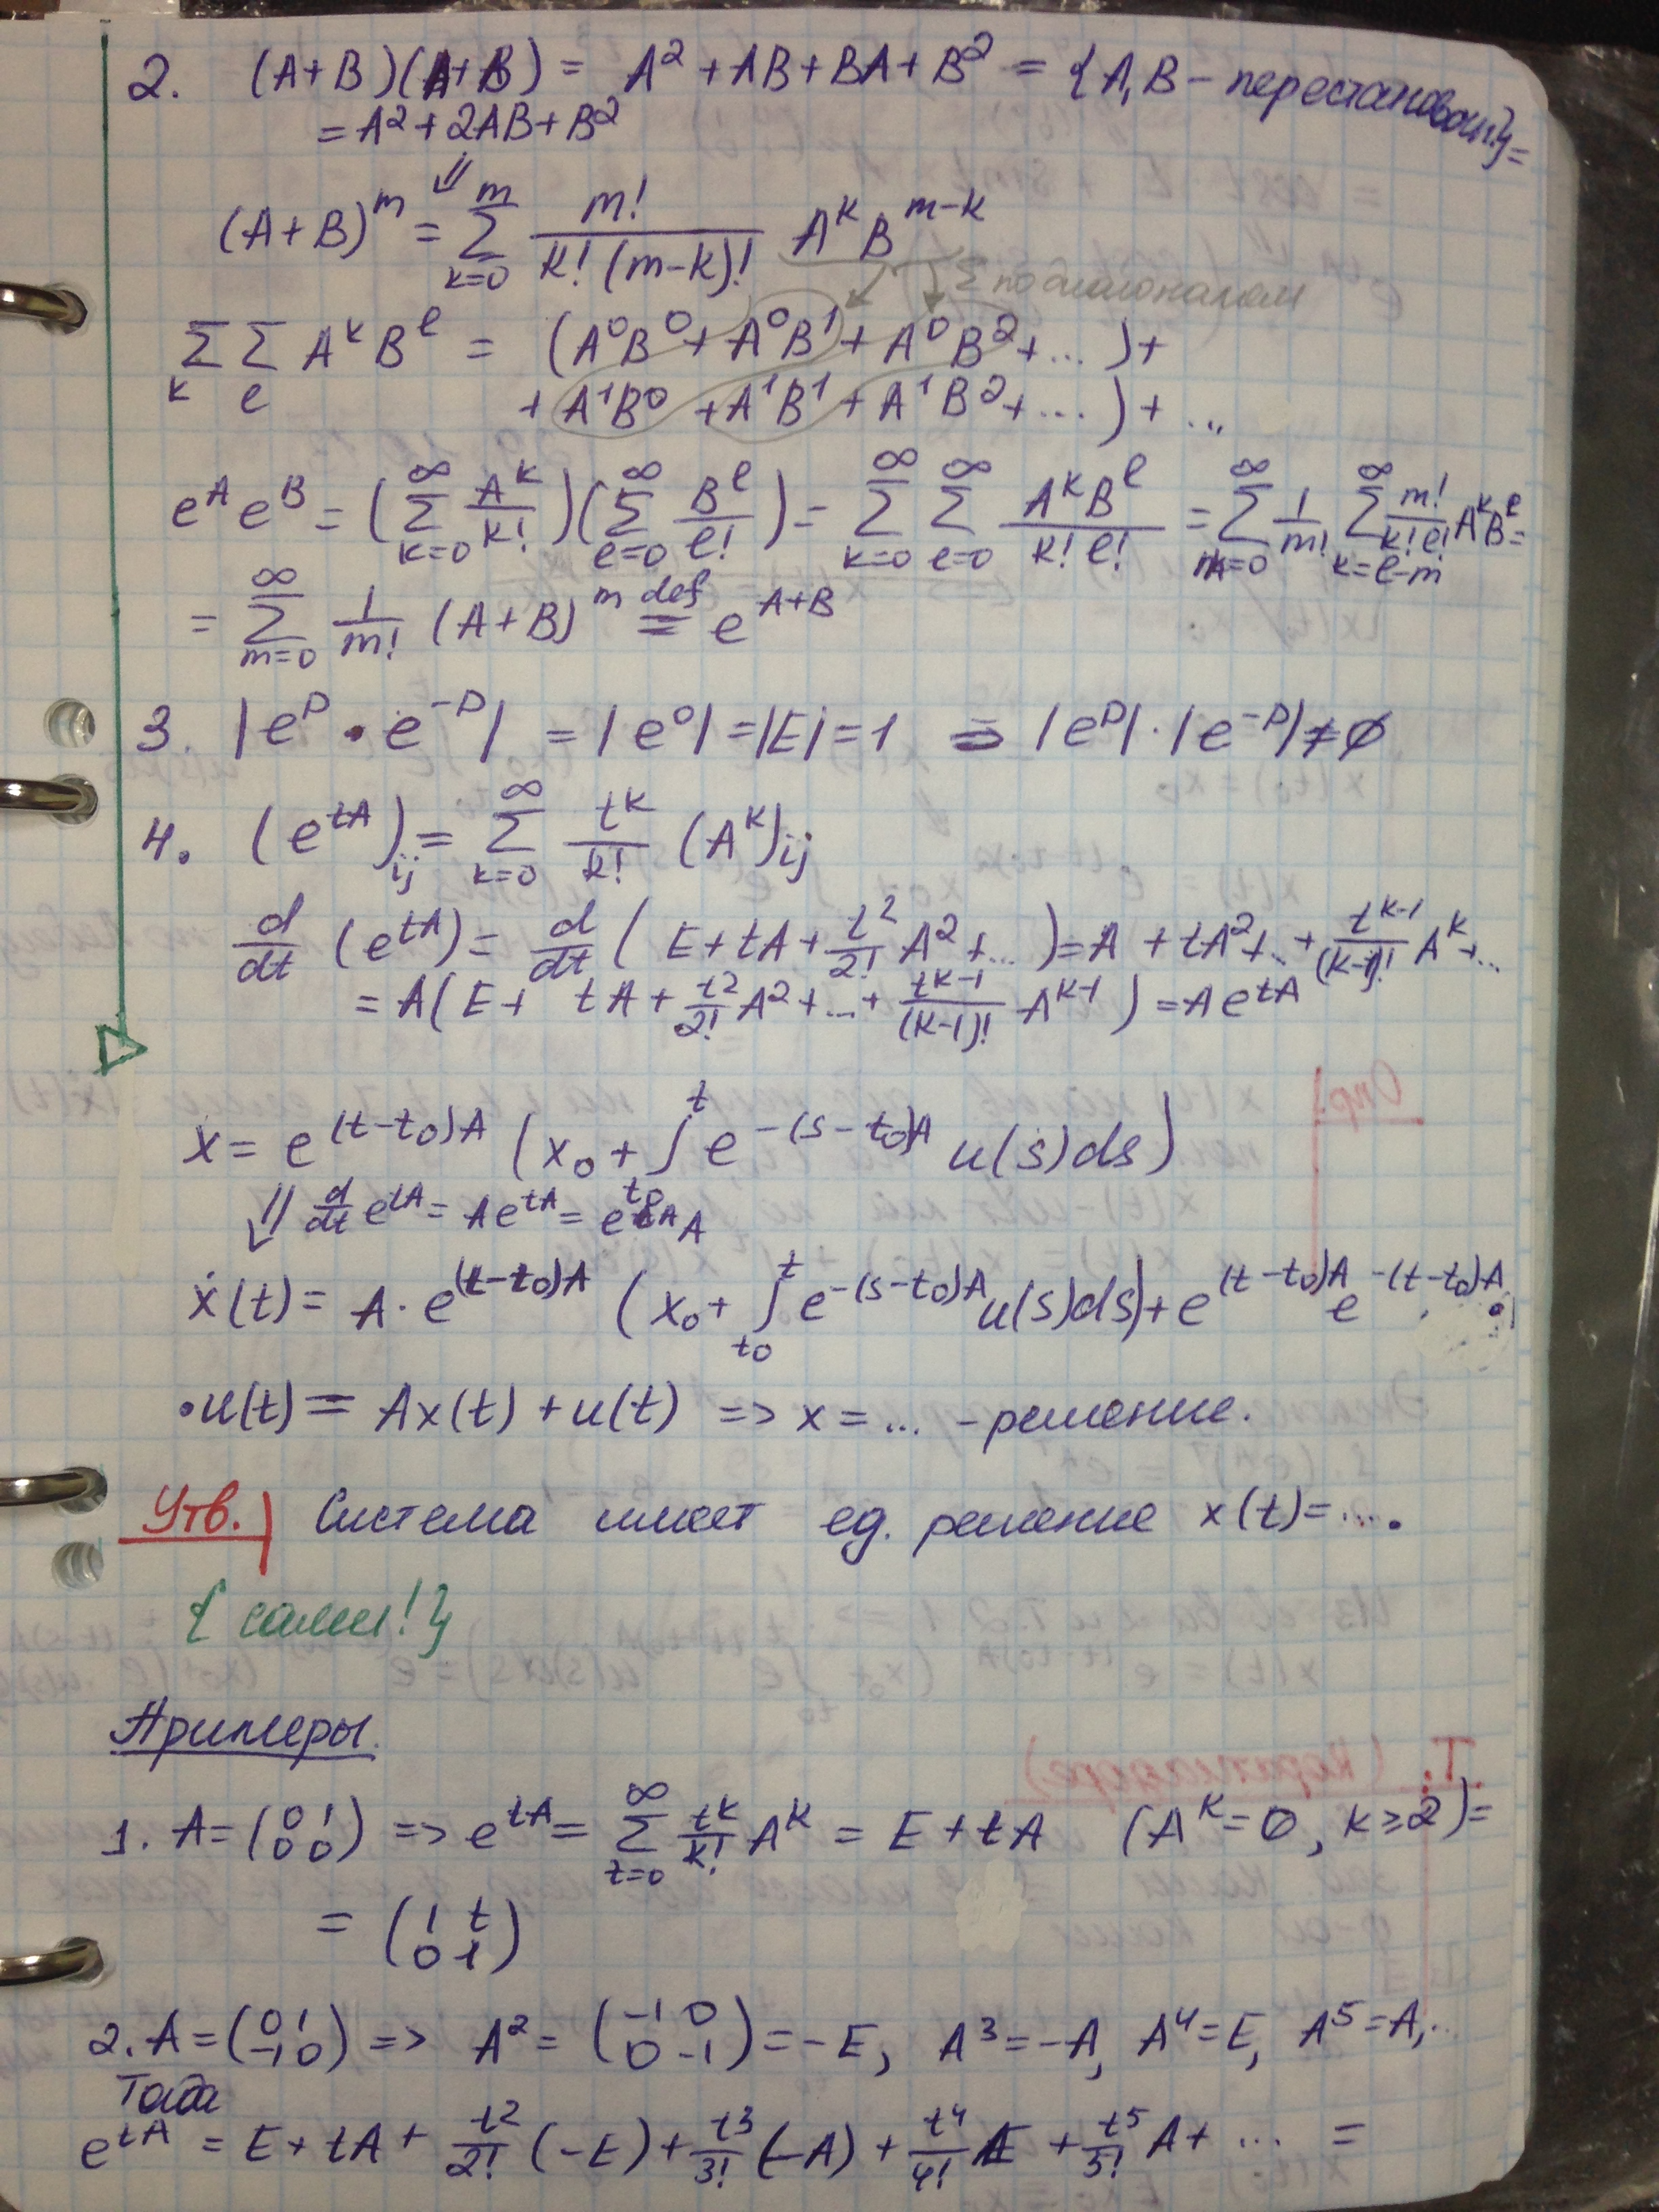 2. (A+B)(A+B) = A² + AB + BA + B² = {A, B – перестановочн.} =
= A² + 2AB + B²
⇓
(A+B)^m = Σ_{k=0}^{m} m!/(k!(m-k)!) A^k B^{m-k}
Σ по диагоналям
Σ_k Σ_l A^k B^l = (A⁰B⁰ + A⁰B¹ + A⁰B² + ...) +
+ A¹B⁰ + A¹B¹ + A¹B² + ...) + ...
e^A e^B = (Σ_{k=0}^{∞} A^k/k!)(Σ_{l=0}^{∞} B^l/l!) = Σ_{k=0}^{∞} Σ_{l=0}^{∞} A^k B^l/(k! l!) = Σ_{m=0}^{∞} 1/m! Σ_{k=l-m}^{∞} m!/(k! l!) A^k B^l =
= Σ_{m=0}^{∞} 1/m! (A+B)^m def= e^{A+B}
3. |e^P · e^{-P}| = |e^0| = |E| = 1 ⇒ |e^P| · |e^{-P}| ≠ 0
4. (e^{tA})_{ij} = Σ_{k=0}^{∞} t^k/k! (A^k)_{ij}
d/dt (e^{tA}) = d/dt (E + tA + t²/2! A² + ...) = A + tA² + .. + t^{k-1}/(k-1)! A^k + ...
= A(E + tA + t²/2! A² + ... + t^{k-1}/(k-1)! A^{k-1}) = A e^{tA}
x = e^{(t-t₀)A} (x₀ + ∫_{t₀}^{t} e^{-(s-t₀)A} u(s)ds)
⇓ d/dt e^{tA} = A e^{tA} = e^{tA} A
ẋ(t) = A · e^{(t-t₀)A} (x₀ + ∫_{t₀}^{t} e^{-(s-t₀)A} u(s)ds) + e^{(t-t₀)A} e^{-(t-t₀)A} ·
· u(t) = Ax(t) + u(t) => x = ... – решение.
Утв. Система имеет ед. решение x(t) = ....
{сами!}
Примеры.
1. A = (0 1; 0 0) => e^{tA} = Σ_{t=0}^{∞} t^k/k! A^k = E + tA (A^k = 0, k ≥ 2) =
= (1 t; 0 1)
2. A = (0 1; -1 0) => A² = (-1 0; 0 -1) = -E, A³ = -A, A⁴ = E, A⁵ = A, ..
Тогда
e^{tA} = E + tA + t²/2! (-E) + t³/3! (-A) + t⁴/4! E + t⁵/5! A + ... =